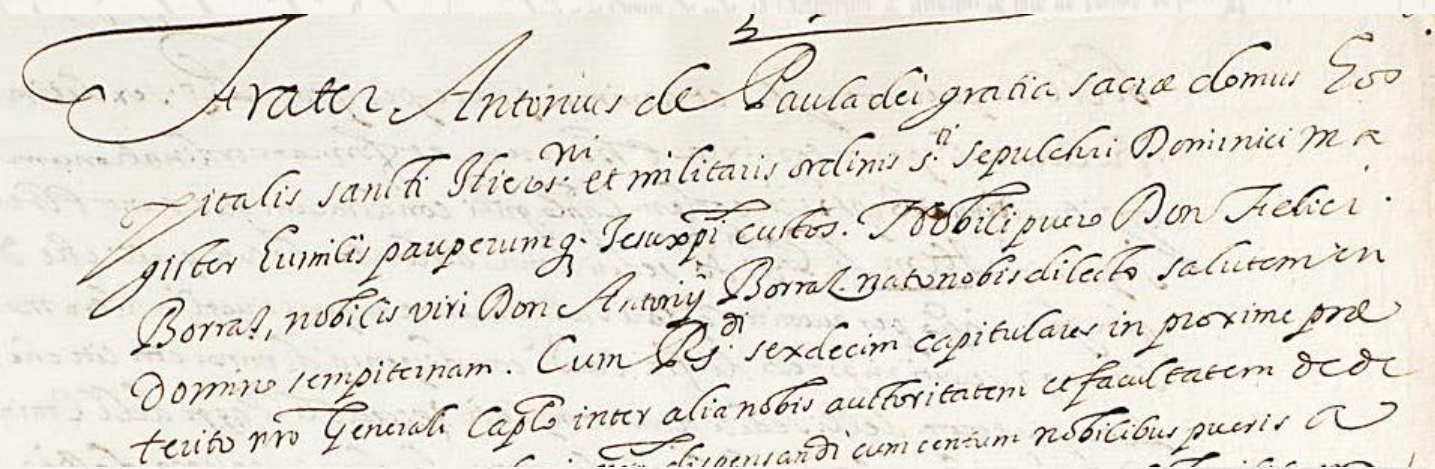 Frater Antonius de Paula dei gratia sacræ domus Hos
pitalis sancti Hieros:ni et militaris ordinis s.ti sepulchri Dominici ma
gister humilis pauperumq. Iesu xpi custos. Nobili puero Don Felici
Borraz, nobilis viri Don Antonÿ Borraz nato nobis dilecto salutem in
Domino sempiternam. Cum Rs.di sexdecim capitulares in proxime præ
terito nro Generali Caplo inter alia nobis auctoritatem et facultatem dede
dispensandi cum centum nobilibus pueris